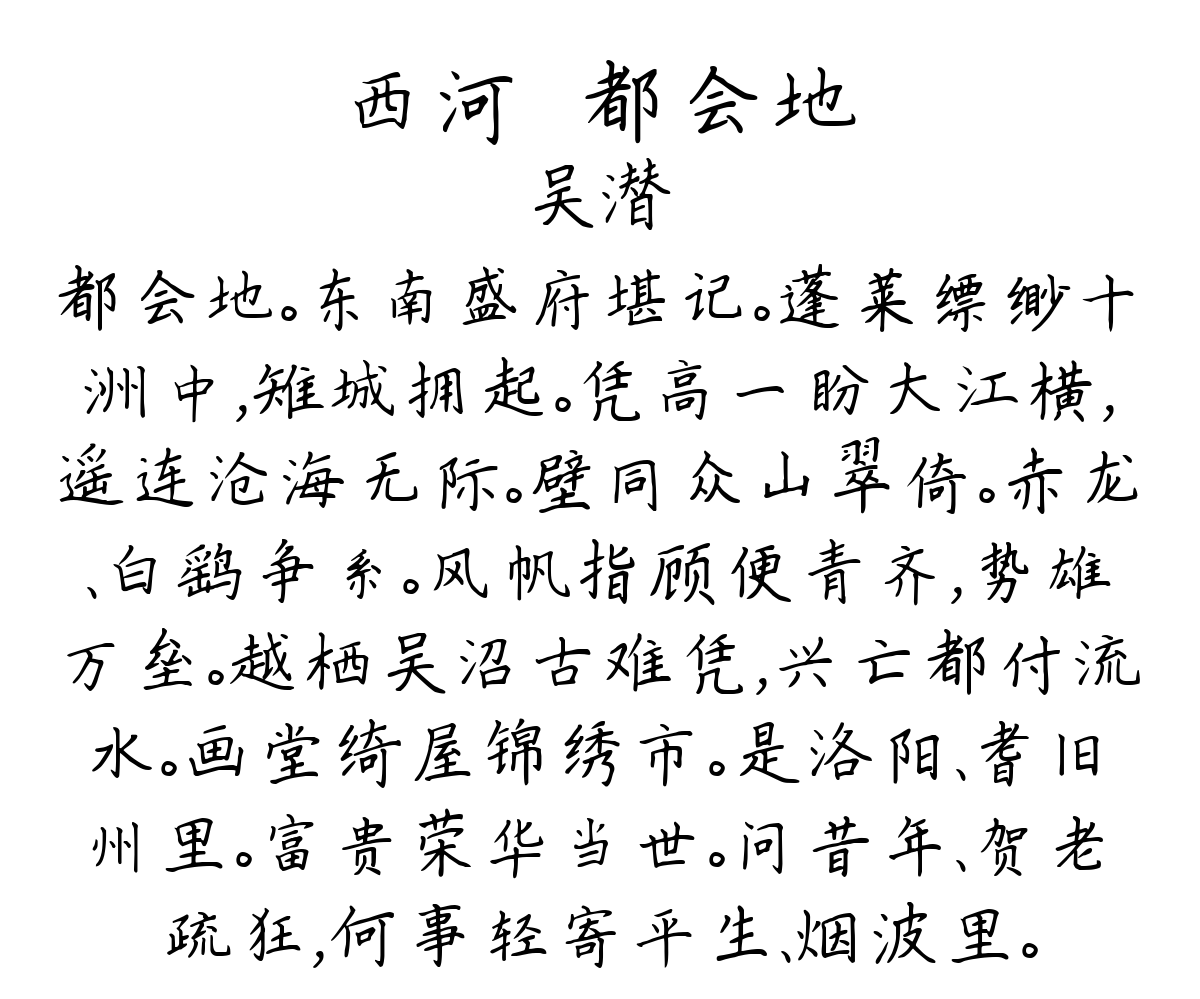 西河 都会地
吴潜
都会地。东南盛府堪记。蓬莱缥缈十
洲中,雉城拥起。凭高一盼大江横,
遥连沧海无际。壁同众山翠倚。赤龙
、白鹞争系。风帆指顾便青齐,势雄
万垒。越栖吴沼古难凭,兴亡都付流
水。画堂绮屋锦绣市。是洛阳、耆旧
州里。富贵荣华当世。问昔年、贺老
疏狂,何事轻寄平生、烟波里。